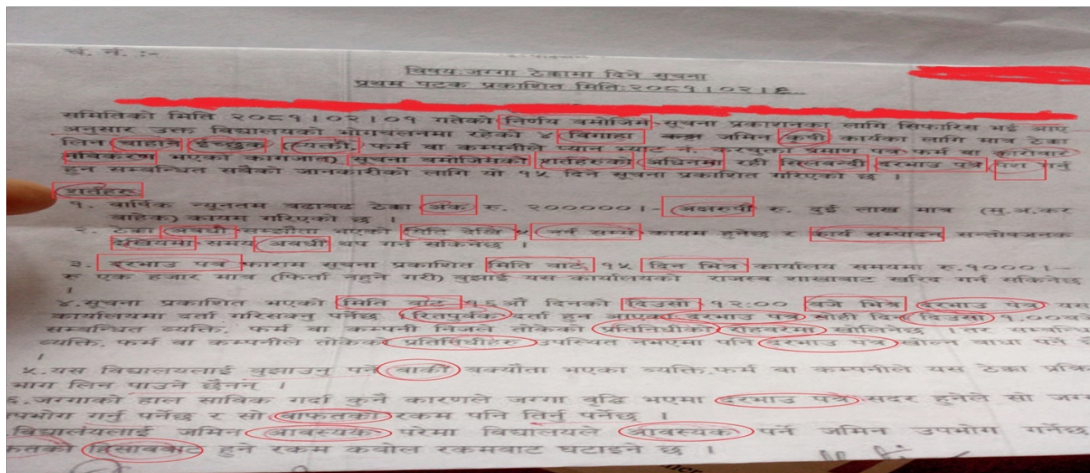 च. नं. :-
विषय:जग्गा ठेक्कामा दिने सूचना
प्रथम पटक प्रकाशित मिति:२०८१।०२।६
समितिको मिति २०८१।०२।०१ गतेको निर्णय बमोजिम सूचना प्रकाशनका लागि सिफारिस भई आए
अनुसार उक्त विद्यालयको भोगचलनमा रहेको ४ बिगाहा जमिन कृषी कार्यका लागि मात्र ठेक्का
लिन चाहाने ईच्छुक व्यक्ती, फर्म वा कम्पनीले प्रमाण पत्र फर्म वा
नविकरण भएको कागजात) सूचना बमोजिमको शर्तहरुको अधिनमा रही सिलबन्दी दरभाउ पत्र पेश गर्नु
हुन सम्बन्धित सबैको जानकारीको लागि यो १५ दिने सूचना प्रकाशित गरिएको छ ।
शर्तहरु
१. वार्षिक न्यूनतम बढाबढ ठेक्का अंक रु. २०००००।- अक्षरुपी रु. दुई लाख मात्र (मु.अ.कर
बाहेक) कायम गरिएको छ ।
२. ठेक्का अवधी सम्झौता भएको मिति देखि ५ वर्ष सम्म कायम हुनेछ र कार्य सम्पादन सन्तोषजनक
देखियमा समय अवधी थप गर्न सकिनेछ ।
३. दरभाउ पत्र फाराम सूचना प्रकाशित मिति बाट १५ दिन भित्र कार्यालय समयमा रु.१०००।-
रु एक हजार मात्र (फिर्ता नहुने गरी) बुझाई यस कार्यालयको राजस्व शाखाबाट खरिद गर्न सकिनेछ
।
४.सूचना प्रकाशित भएको मिति बाट १६औं दिनको दिउसो १२:०० बजे भित्र दरभाउ पत्र यस
कार्यालयमा दर्ता गरिसक्नु पर्नेछ । रितपूर्वक दर्ता हुन आएका दरभाउ पत्र सोही दिन दिउसो
सम्बन्धित व्यक्ति, फर्म वा कम्पनी निजले तोकेको प्रतिनिधीहरु खोलिनेछ ।
व्यक्ति, फर्म वा कम्पनीले तोकेको प्रतिनिधीहरु उपस्थित नभएमा पनि दरभाउ पत्र खोल्न बाधा पर्ने
।
५.यस विद्यालयलाई बुझाउनु पर्ने बाकी बक्यौता भएका व्यक्ति,फर्म वा कम्पनीले यस ठेक्का
भाग लिन पाउने छैनन् ।
६.जग्गाको हाल साविक गर्दा कुनै कारणले जग्गा बृद्धि भएमा दरभाउ पत्र सदर हुनेले सो
उपभोग गर्नु पर्नेछ र सो बापतको रकम पनि तिर्नु पर्नेछ ।
विद्यालयलाई जमिन आवस्यक परेमा विद्यालयले आवस्यक पर्ने जमिन उपभोग गर्नेछ
हिसाबबाट हुने रकम कबोल रकमबाट घटाइने छ ।